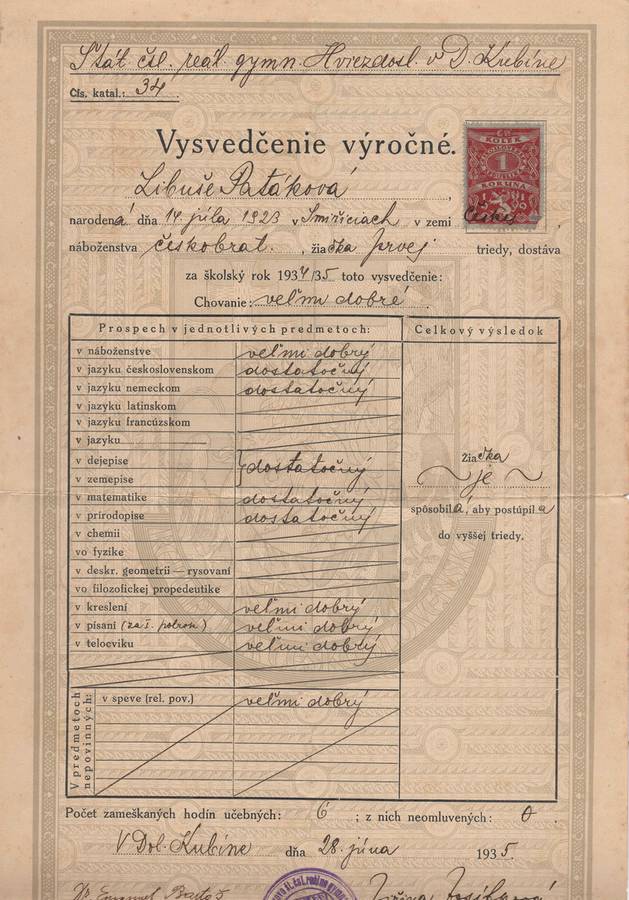 Štát. čsl. reál. gymn. Hviezdosl. v D. Kubíne
Čís. katal.: 34
Vysvedčenie výročné.
KOLEK
1
KORUNA
Libuše Patáková,
narodená dňa 14 júla 1923 v Smiřiciach v zemi Českej
náboženstva českobrat., žiačka prvej triedy, dostáva
za školský rok 1934/35 toto vysvedčenie:
Chovanie: veľmi dobré.
Prospech v jednotlivých predmetoch: Celkový výsledok
v náboženstve veľmi dobrý
v jazyku československom dostatočný
v jazyku nemeckom dostatočný
v jazyku latinskom
v jazyku francúzskom
v jazyku
v dejepise dostatočný
v zemepise
v matematike dostatočný
v prírodopise dostatočný
v chemii
vo fyzike
v deskr. geometrii — rysovaní
vo filozofickej propedeutike
v kreslení veľmi dobrý
v písaní (za I. polrok) veľmi dobrý
v telocviku veľmi dobrý
žiačka
~ je ~
spôsobilá, aby postúpila
do vyššej triedy.
V predmetoch nepovinných:
v speve (rel. pov.) veľmi dobrý
Počet zameškaných hodín učebných: 6; z nich neomluvených: 0.
V Dol. Kubíne dňa 28. júna 1935.
Dr Emanuel Bartoš